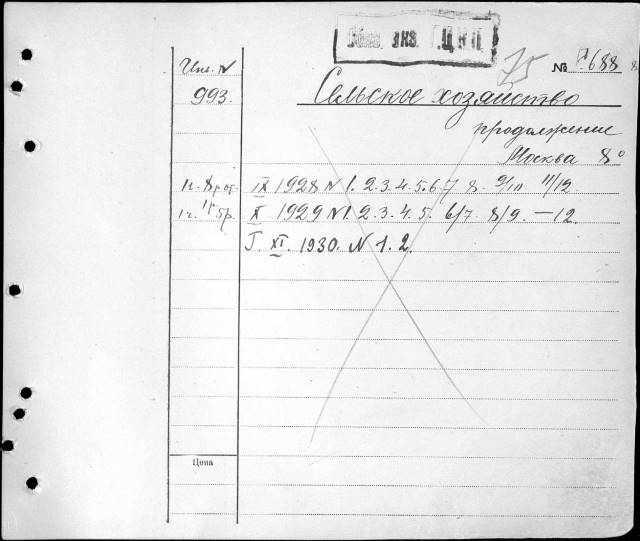 Обяз. экз. Г.Ц.К.П.
75 № 688
Инв. №
993.
Сельское хозяйство
продолжение
Москва 8°
IX 1928 № 1. 2. 3. 4. 5. 6. 7 8. 9/10 11/12
X 1929 № 1. 2. 3. 4. 5. 6/7. 8/9. — 12.
Г. XI. 1930. № 1. 2.
Цена